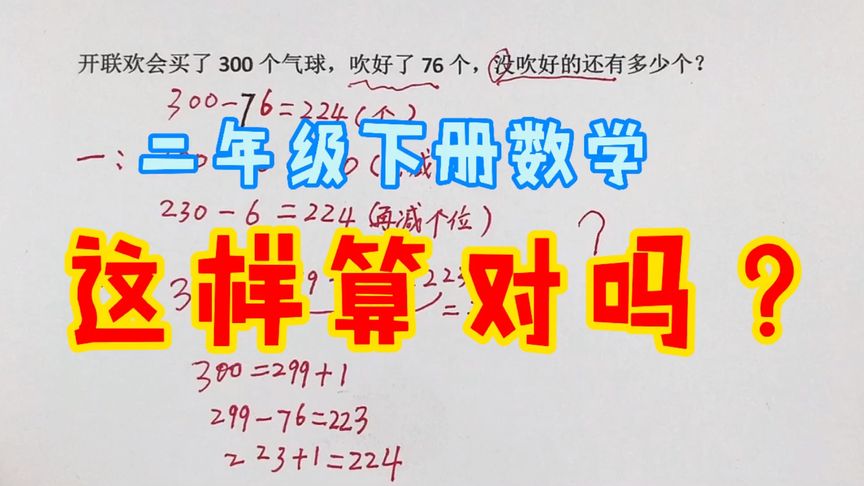 开联欢会买了 300 个气球，吹好了 76 个，没吹好的还有多少个？
300-76=224(个)
一：
二年级下册数学
230-6=224(再减个位)
这样算对吗？
300=299+1
299-76=223
223+1=224